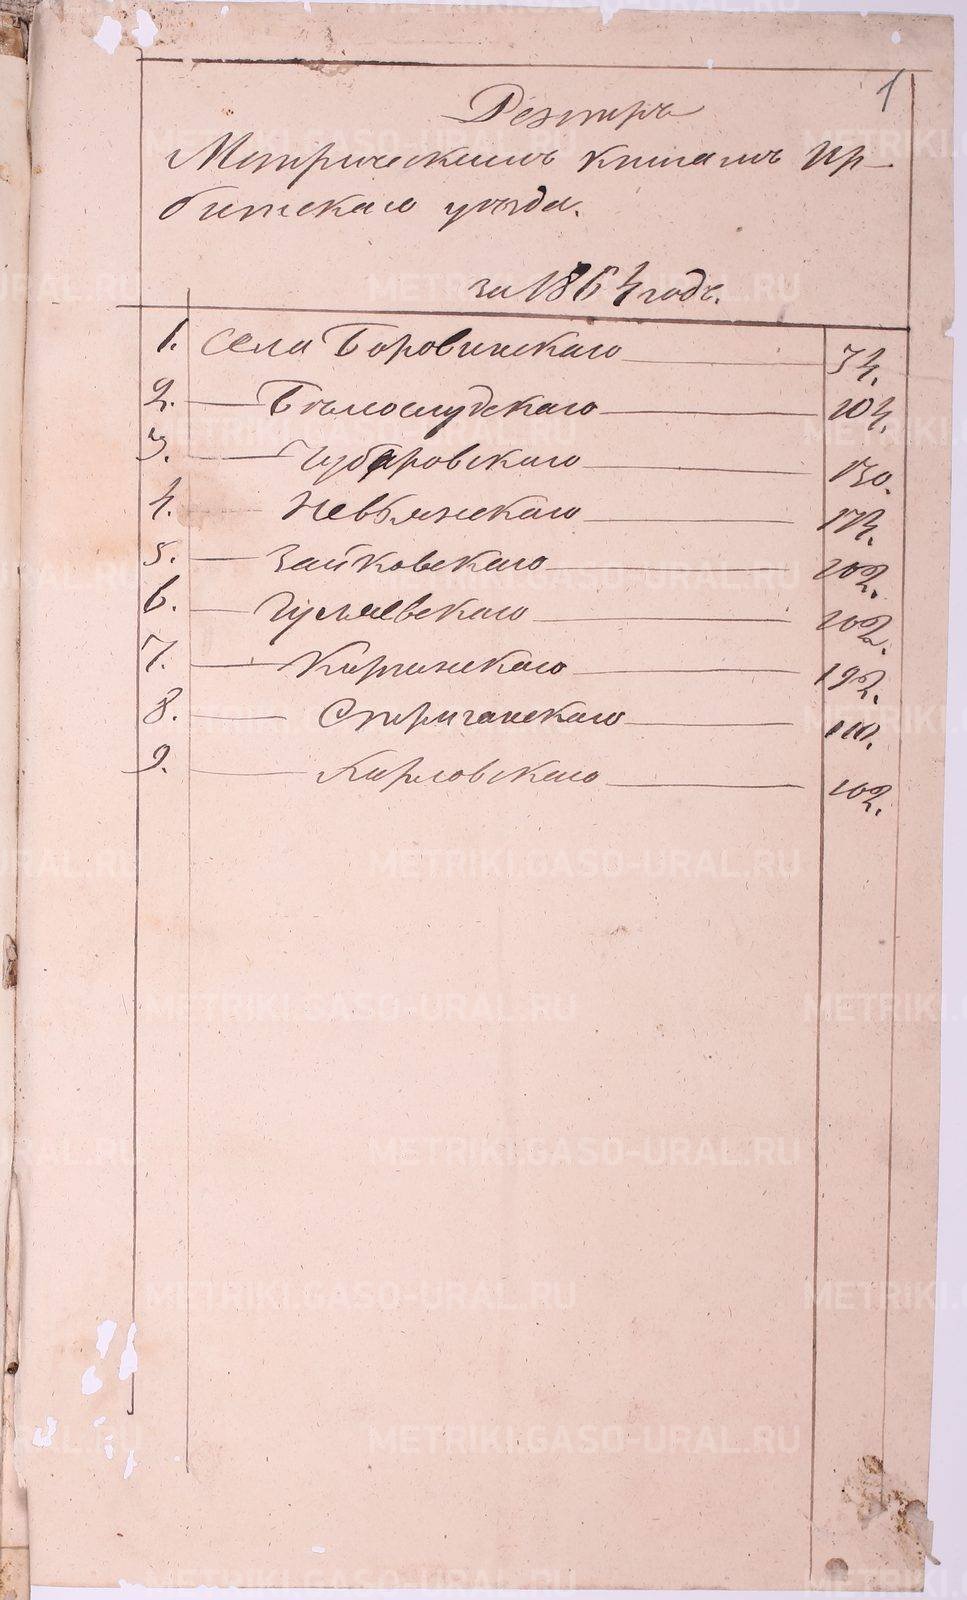 1
Реэстръ
Метрическимъ книгамъ Ир-
битскаго уѣзда.
за 1864 годъ.
1. Села Боровинскаго 74.
2. Бѣлослудскаго 104.
3. Чубаровскаго 130.
4. Невьянскаго 174.
5. Зайковскаго 102.
6. Гуляевскаго 102.
7. Киргинскаго 192.
8. Стриганскаго 110.
9. Кирловскаго 102.
METRIKI.GASO-URAL.RU